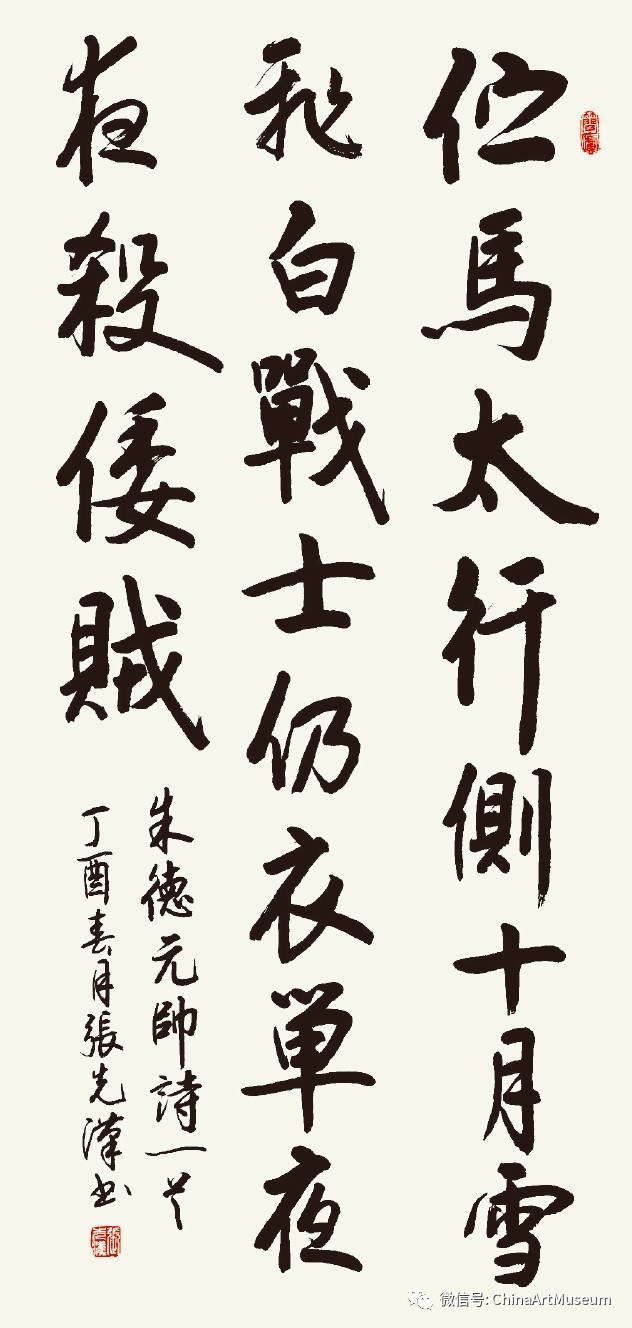 伫馬太行側十月雪
飛白戰士仍衣單夜
夜殺倭賊
朱德元帥詩一首
丁酉春月張先漢书
微信号: ChinaArtMuseum